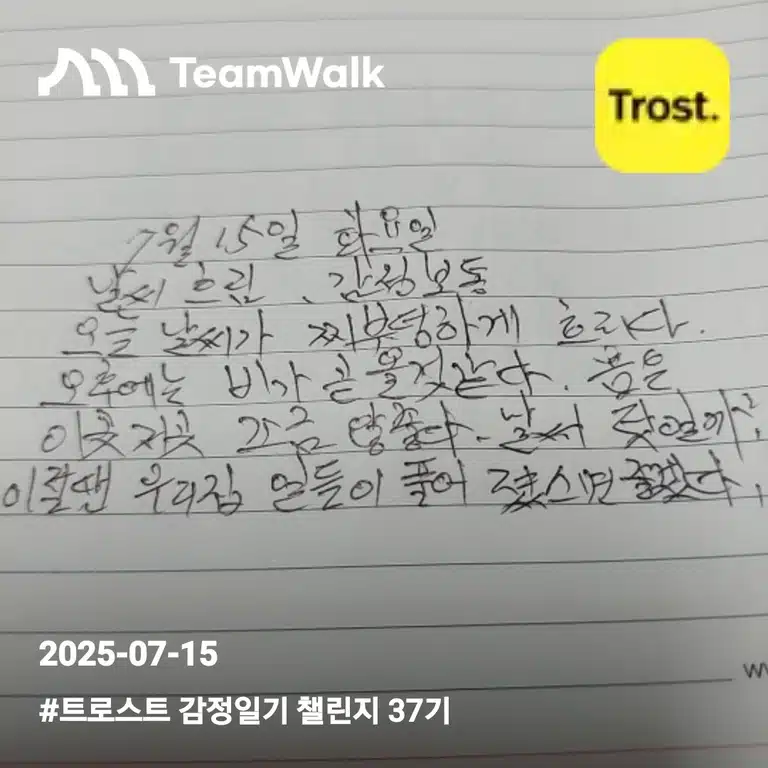 TeamWalk
Trost.
7월 15일 화요일
날씨 흐림 , 감정 보통
오늘 날씨가 찌부덩하게 흐리다.
오후에는 비가 곧 올것같다. 몸은
이곳저곳 조금 안좋다. 날서 탓일까?
이럴땐 우리집 일들이 풀어 졌스면 좋겠다.
2025-07-15
#트로스트 감정일기 챌린지 37기